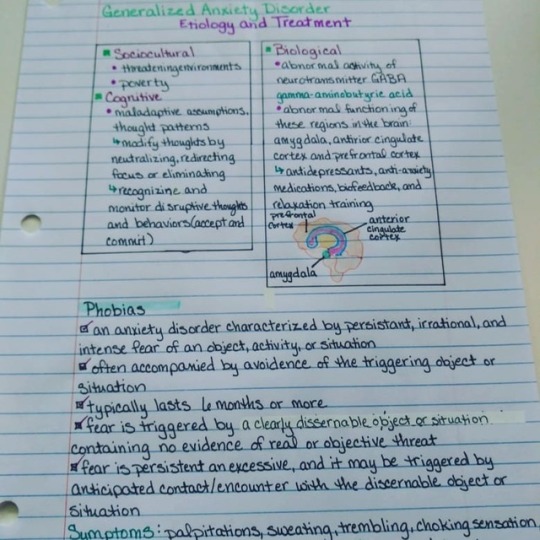 Generalized Anxiety Disorder
Etiology and Treatment
Sociocultural
• threatening environments
• poverty
Cognitive
• maladaptive assumptions,
thought patterns
↳ modify thoughts by
neutralizing, redirecting
focus or eliminating
↳ recognizine and
monitor disruptive thoughts
and behaviors (accept and
commit)
Biological
• abnormal activity of
neurotransmitter GABA
gamma-aminobutyric acid
• abnormal functioning of
these regions in the brain:
amygdala, antirior cingulate
cortex and prefrontal cortex
↳ antidepressants, anti-anxiety
medications, biofeedback, and
relaxation training
prefrontal
cortex
anterior
cingulate
cortex
amygdala
Phobias
an anxiety disorder characterized by persistant, irrational, and
intense fear of an object, activity, or situation
often accompanied by avoidence of the triggering object or
situation
typically lasts 6 months or more
fear is triggered by a clearly dissernable object or situation
containing no evidence of real or objective threat
fear is persistent an excessive, and it may be triggered by
anticipated contact/encounter with the discernable object or
situation
Symptoms: palpitations, sweating, trembling, choking sensation,